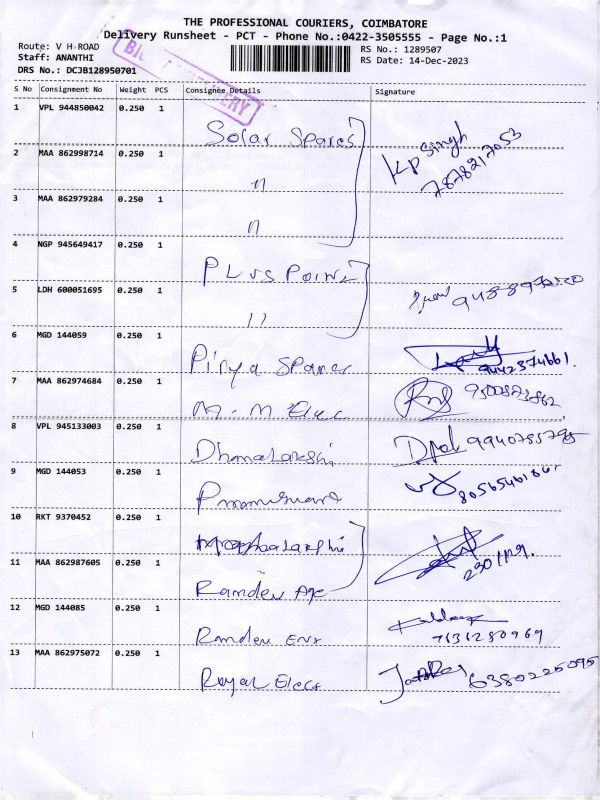 THE PROFESSIONAL COURIERS, COIMBATORE
Delivery Runsheet - PCT - Phone No.:0422-3505555 - Page No.:1
Route: V H-ROAD
RS No.: 1289507
Staff: ANANTHI
RS Date: 14-Dec-2023
DRS No.: DCJB128950701
S No Consignment No Weight PCS Consignee Details Signature
1 VPL 944850042 0.250 1 Solar Spares
KP Singh
7878217053
2 MAA 862998714 0.250 1 "
3 MAA 862979284 0.250 1 "
4 NGP 945649417 0.250 1 Plus Point
5 LDH 600051695 0.250 1 "
6 MGD 144059 0.250 1 Piriya
9442374661.
7 MAA 862974684 0.250 1 M.M Elec
8 VPL 945133003 0.250 1
9 MGD 144053 0.250 1
10 RKT 9370452 0.250 1
11 MAA 862987605 0.250 1 Ramdev Age
12 MGD 144085 0.250 1 Ramdev Ent
7631280969
13 MAA 862975072 0.250 1 Royal Elect
6380225095